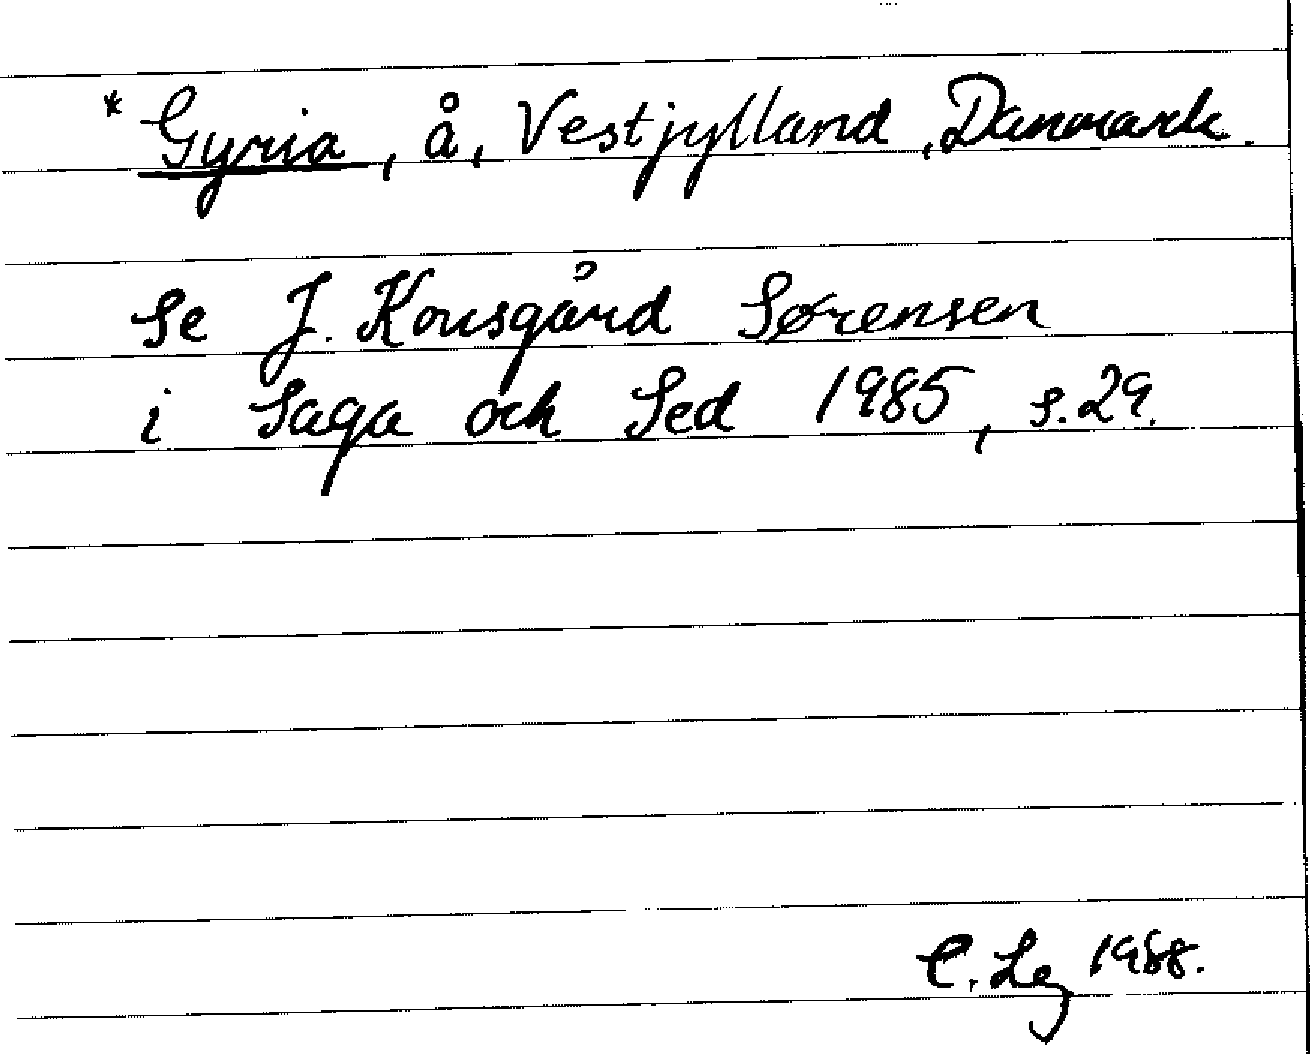 * Gyria, å, Vestjylland, Danmark.
Se J. Kousgård Sørensen
i Saga och Sed 1985, s. 29.
C. Lg 1988.